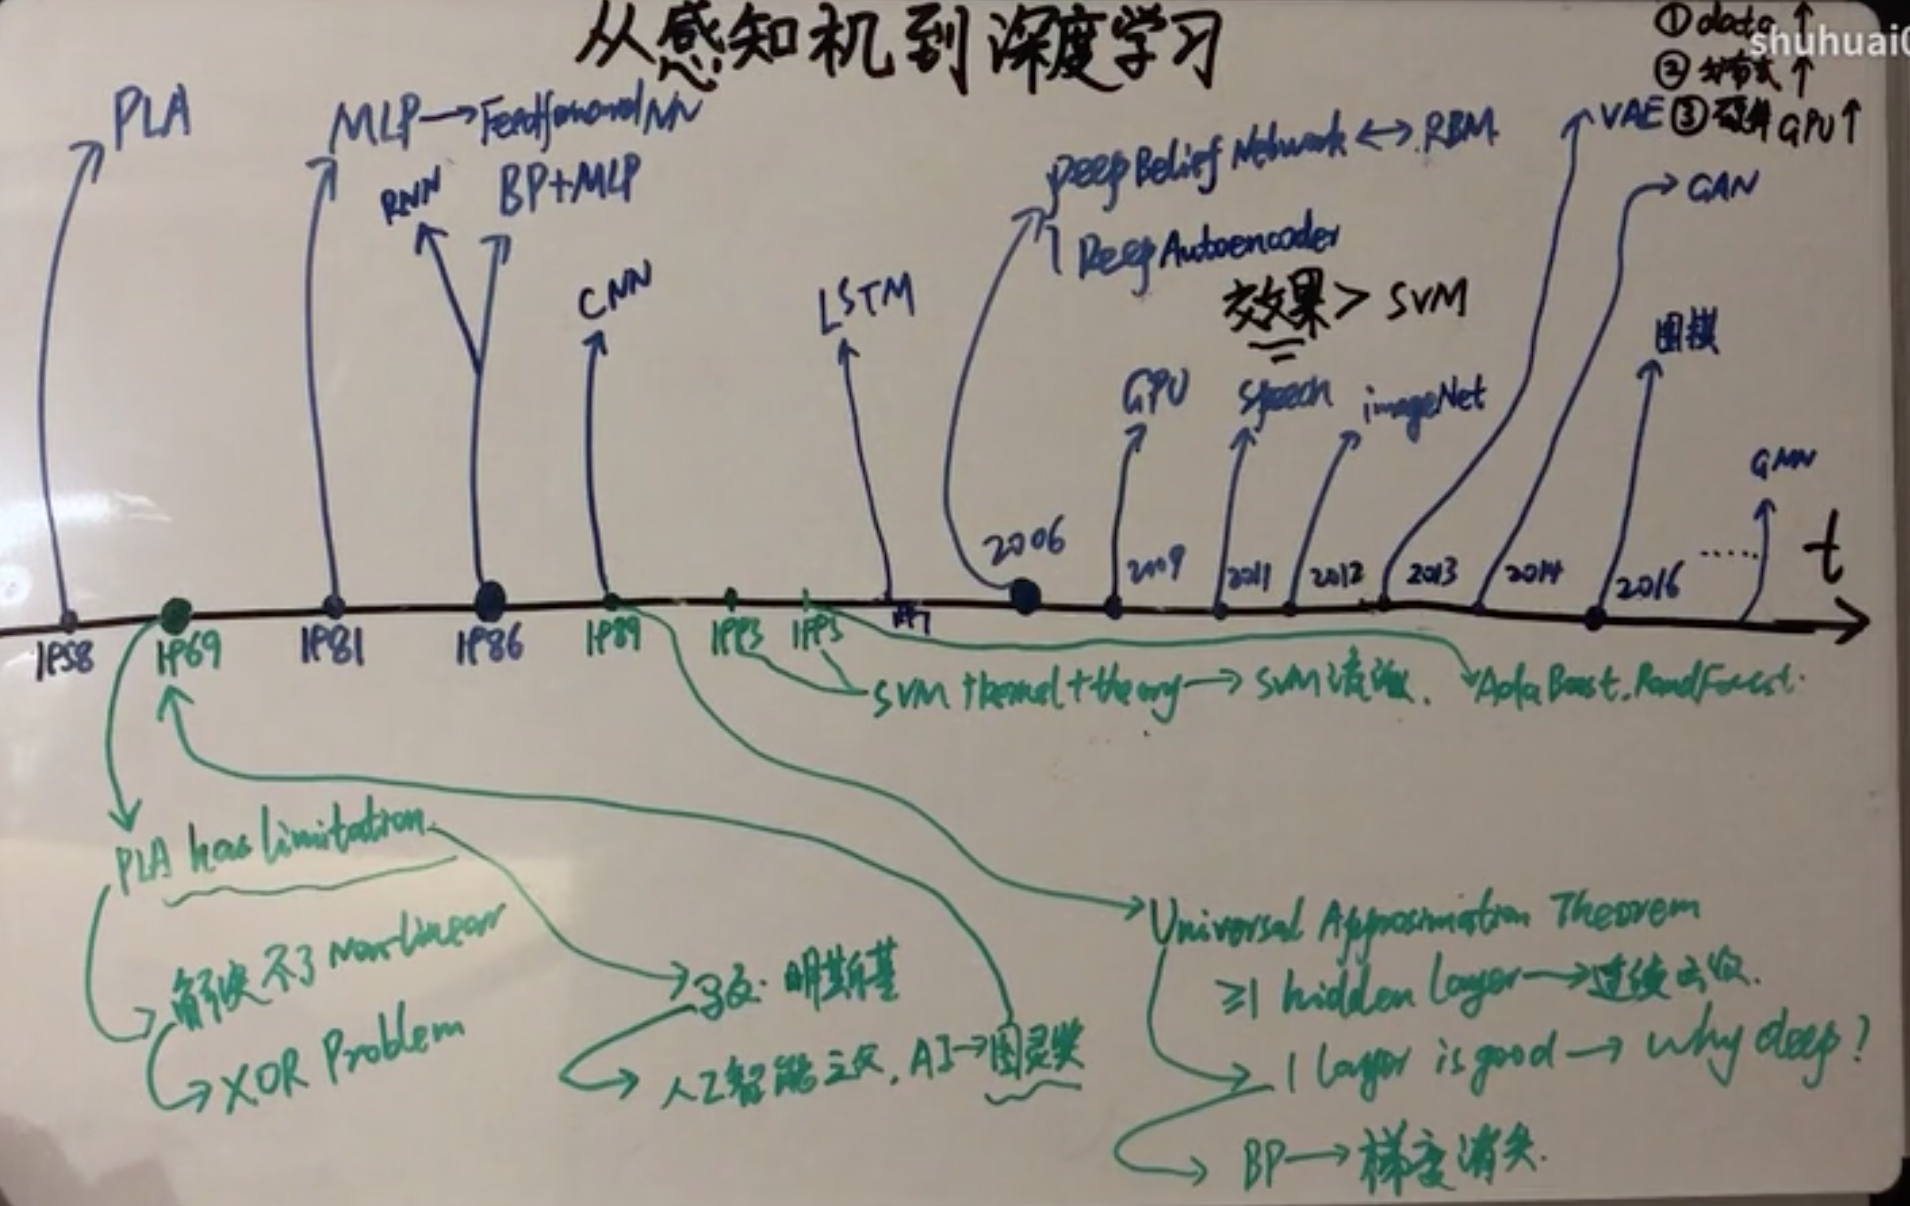 从感知机到深度学习
① data ↑
shuhuai0
② 分布式 ↑
③ 硬件 GPU ↑
PLA
MLP → Feedforward NN
RNN
BP+MLP
CNN
LSTM
Deep Belief Network ↔ RBM
Deep Autoencoder
效果 > SVM
GPU
speech
imageNet
VAE
GAN
围棋
GNN
t
1958
1969
1981
1986
1989
1993
1995
97
2006
2009
2011
2012
2013
2014
2016
SVM + kernel + theory → SVM 流派.
AdaBoost. RandForest.
PLA has limitation
解决不了 non-linear
XOR Problem
明斯基
人工智能之父, AI → 图灵奖
Universal Approximation Theorem
≥1 hidden layer → 连续函数.
1 layer is good → why deep?
BP → 梯度消失.